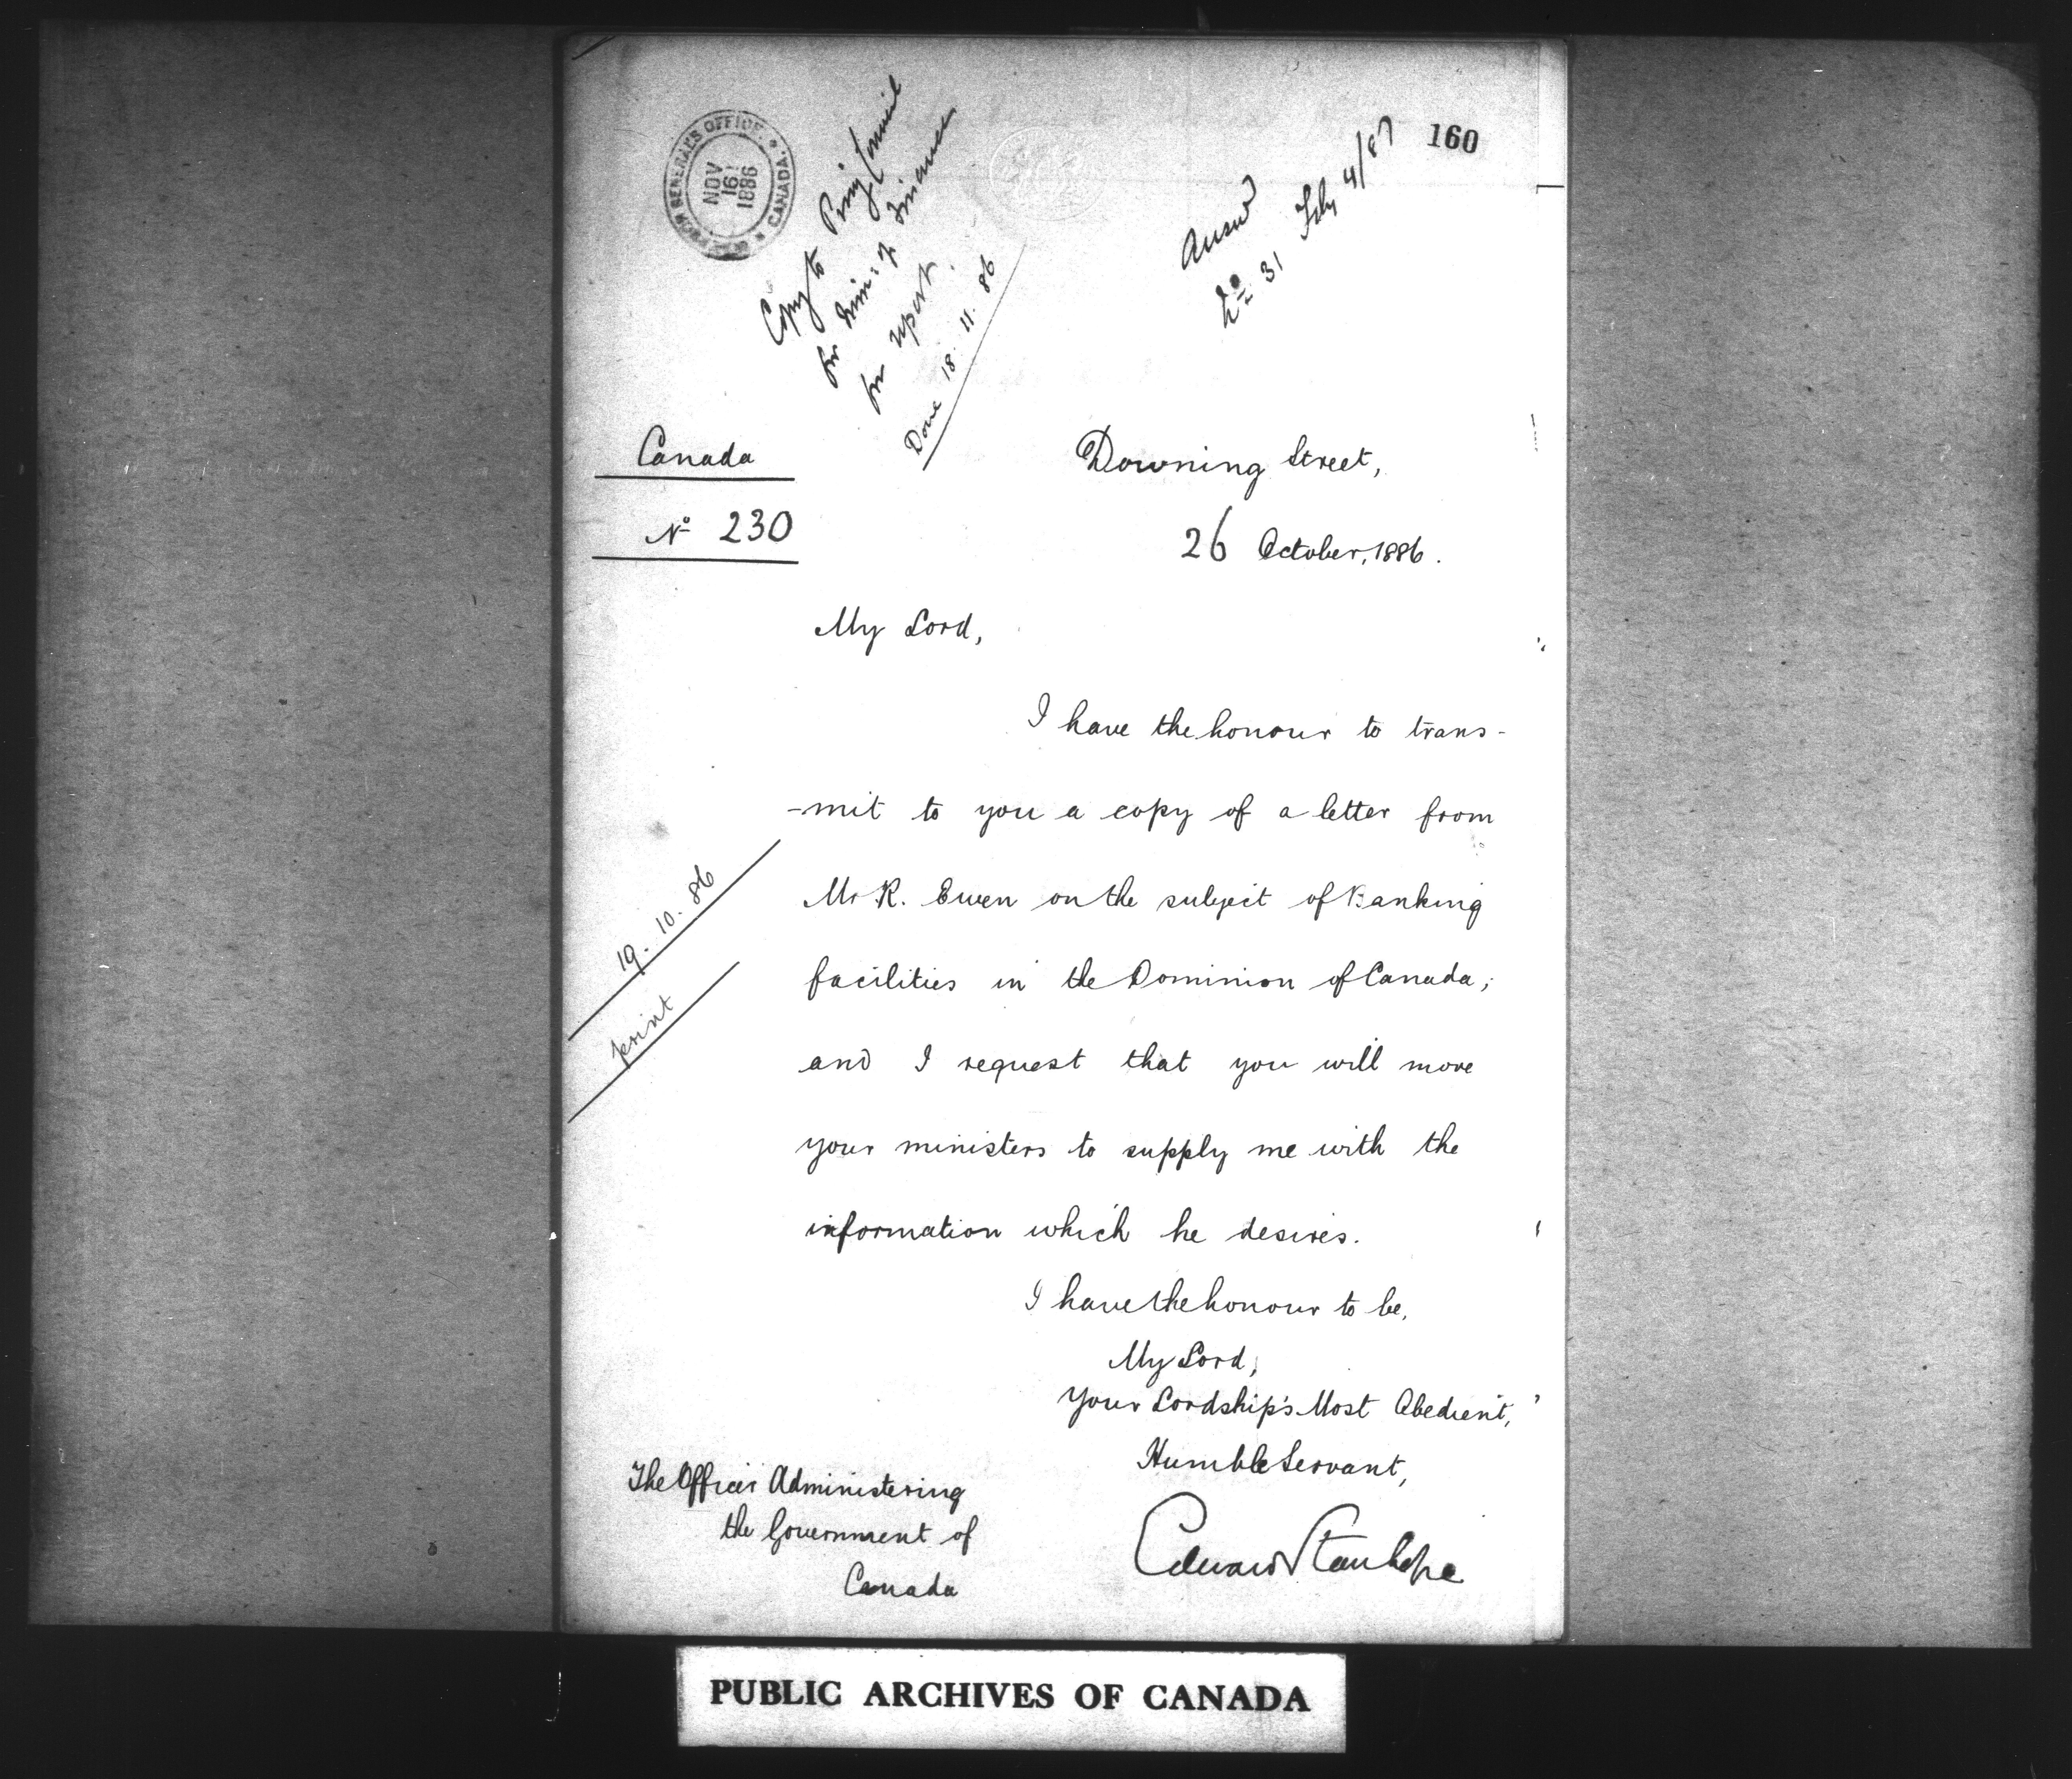 160
GOVERNOR GENERAL'S OFFICE
NOV
16
1886
CANADA
Copy to Privy Council
for Min: of Finance
for report.
Done 18. 11. 86
Answd
No 31 Feby 4/87
Canada
No 230
Downing Street,
26 October, 1886.
My Lord,
I have the honour to trans-
-mit to you a copy of a letter from
Mr R. Ewen on the subject of Banking
facilities in the Dominion of Canada;
and I request that you will move
your ministers to supply me with the
information which he desires.
19. 10. 86
print
I have the honour to be,
My Lord,
Your Lordship's Most Obedient,
Humble Servant,
Edward Stanhope
The Officer Administering
the Government of
Canada
PUBLIC ARCHIVES OF CANADA